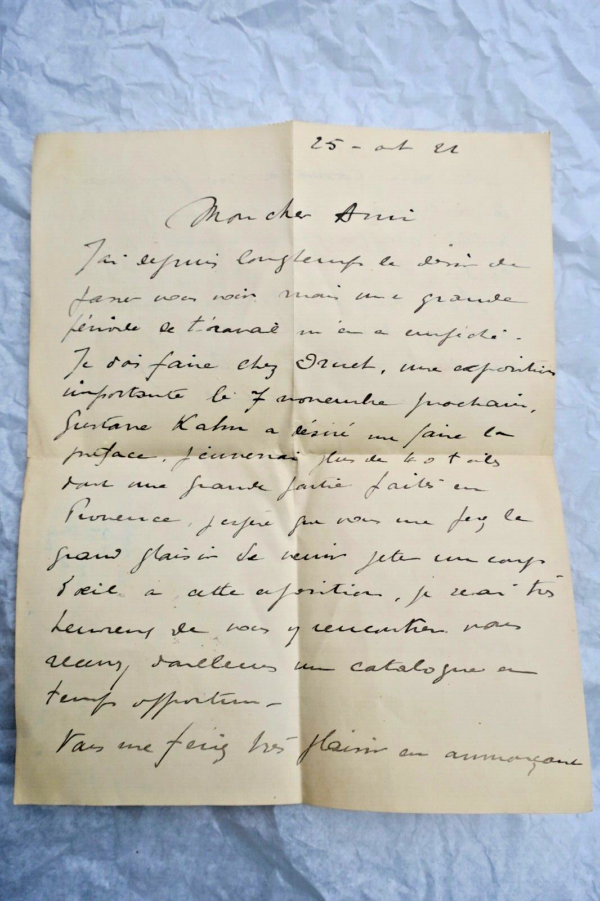 25 - oct 21
Mon cher Ami
J'ai depuis longtemps le désir de
passer vous voir mais une grande
période de travail m'en a empêché.
Je dois faire chez Druet, une exposition
importante le 7 novembre prochain,
Gustave Kahn a désiré me faire la
préface, j'enverrai plus de toiles
dont une grande partie faites en
Provence, j'espère que vous me ferez le
grand plaisir de venir jeter un coup
d'oeil à cette exposition, je serai très
heureux de vous y rencontrer vous
recevrez d'ailleurs un catalogue en
temps opportun -
Vous me feriez très plaisir en annonçant